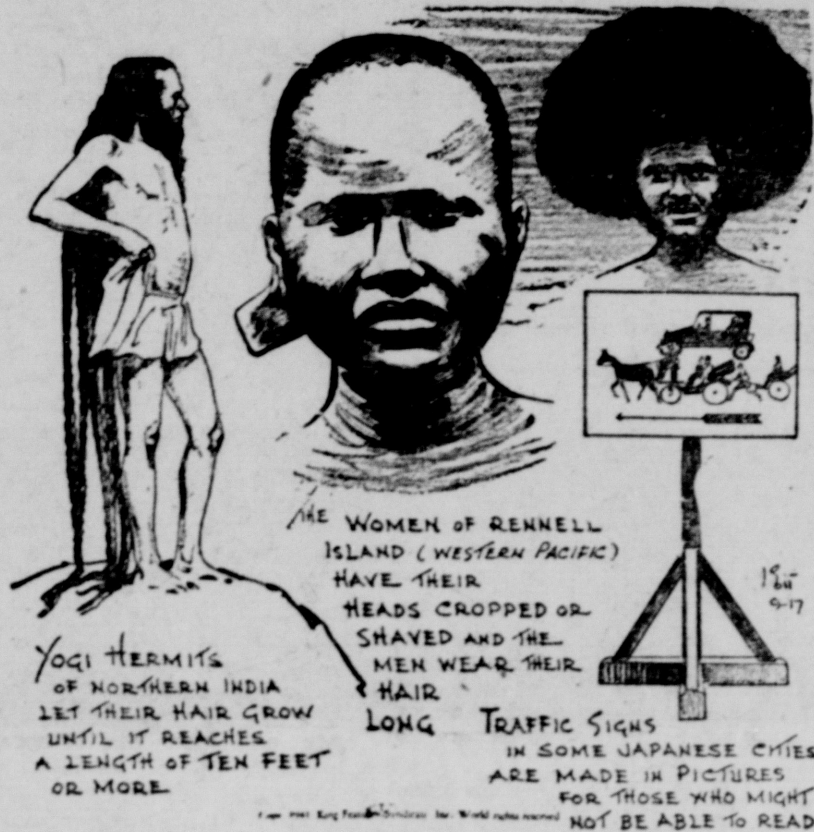 Yogi Hermits
of Northern India
let their hair grow
until it reaches
a length of ten feet
or more
The women of Rennell
Island (Western Pacific)
have their
heads cropped or
shaved and the
men wear their
hair
long
Traffic Signs
in some Japanese cities
are made in pictures
for those who might
not be able to read
9-17
King Features Syndicate Inc. World rights reserved